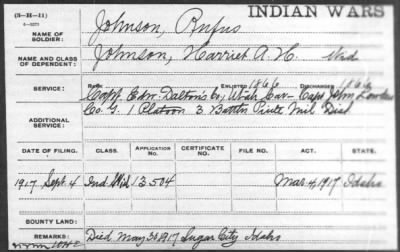 (3-H-11)
6-3273
INDIAN WARS
NAME OF SOLDIER: Johnson, Rufus
NAME AND CLASS OF DEPENDENT: Johnson, Harriet A. H. Wid
SERVICE: RANK ENLISTED 1866 DISCHARGED 1866
Capt. Edw. Dalton's Co, Utah Cav - Capt John
ADDITIONAL SERVICE: Co. G. 1 Platoon 3 Battn Piute Mil Dist
DATE OF FILING. CLASS. APPLICATION NO. CERTIFICATE NO. FILE NO. ACT. STATE.
1917 Sept. 4 Ind. Wid. 13504 Mar 4, 1917 Idaho
BOUNTY LAND:
REMARKS: Died May 1917 Sugar City Idaho